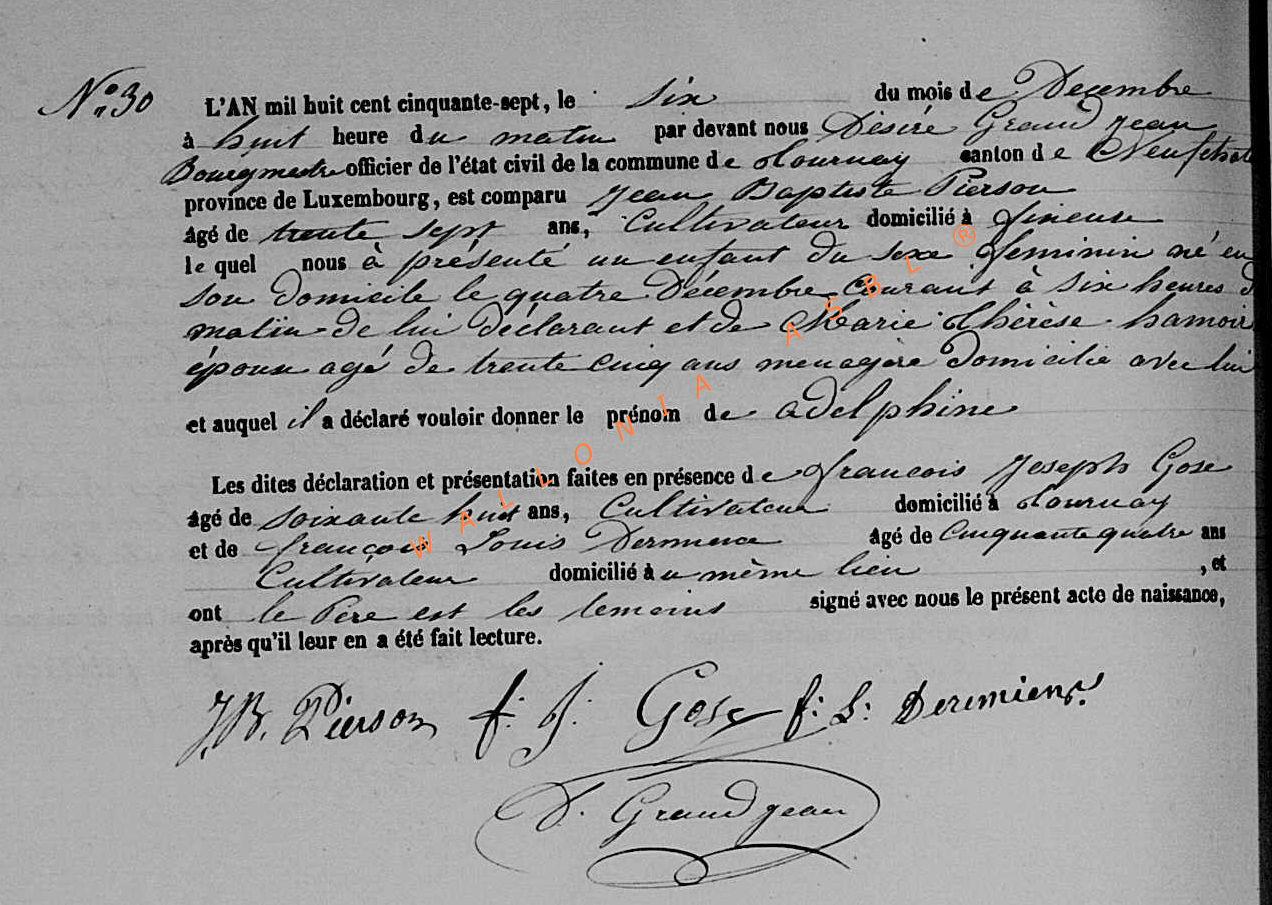 N° 30
L'AN mil huit cent cinquante-sept, le six du mois de Décembre
à huit heure du matin par devant nous Désiré Grand jean
Bourgmestre officier de l'état civil de la commune de tournay canton de Neufchat
province de Luxembourg, est comparu Jean Baptiste Pierson
âgé de trente sept ans, Cultivateur domicilié à
le quel nous à présenté un enfant du sexe feminin né en
son domicile le quatre Décembre Courant à six heures d
matin de lui déclarant et de Marie Thérèse hamoir
épouse agé de trente cinq ans menagère domicilié avec lui
et auquel il a déclaré vouloir donner le prénom de adelphine
Les dites déclaration et présentation faites en présence de francois Joseph Gose
âgé de soixante huit ans, Cultivateur domicilié à tournay
et de françois Louis âgé de Cinquante quatre ans
Cultivateur domicilié à u même lieu , et
ont le Père est les temoins signé avec nous le présent acte de naissance,
après qu'il leur en a été fait lecture.
J. B. Pierson f: J: Gose f: L: Dermiens
D. Grand jean
WALLONIA ASBL ®